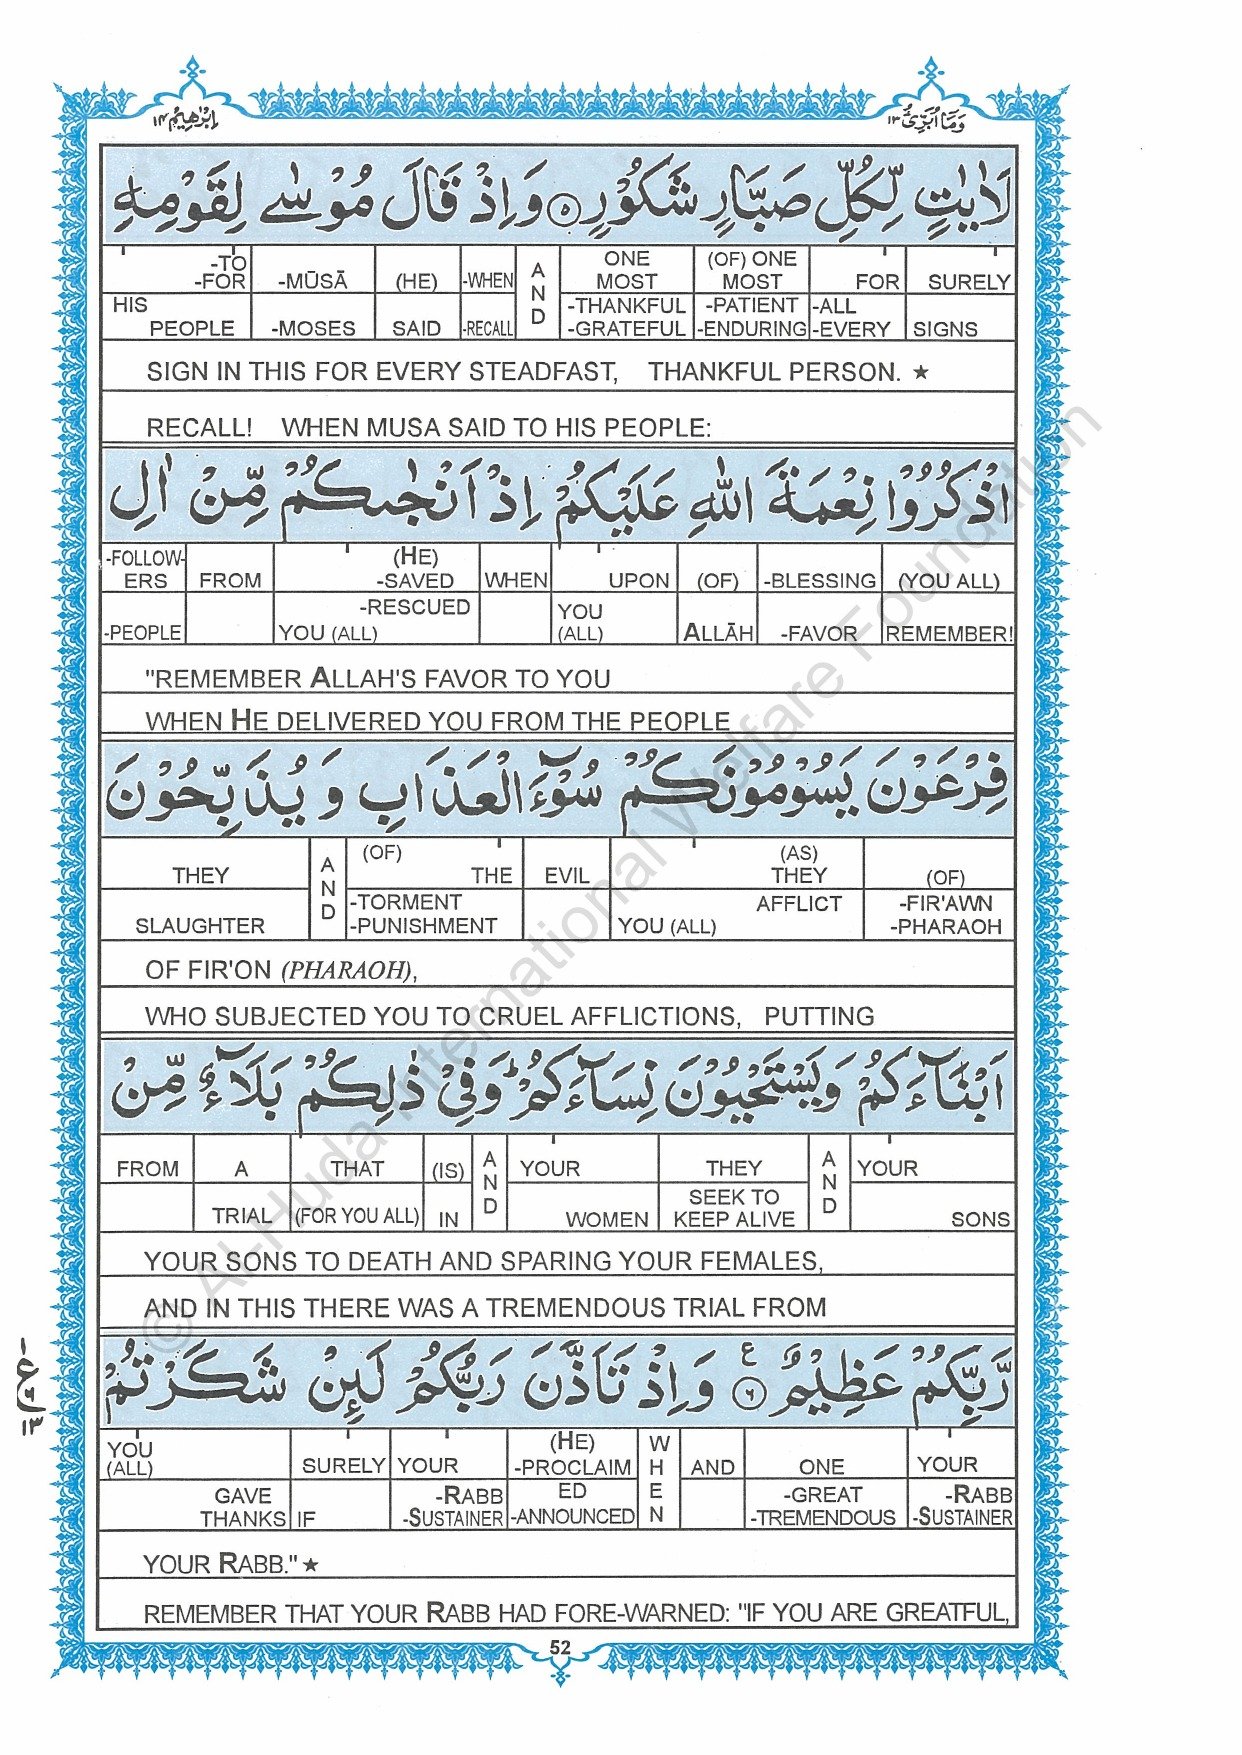 اِبْرٰهِيْمُ ١٤
وَمَا اُبَرِّئُ ١٣
لَاٰيٰتٍ لِّكُلِّ صَبَّارٍ شَكُوْرٍ ٥ وَاِذْ قَالَ مُوْسٰى لِقَوْمِهِ
-TO -FOR | -MŪSĀ | (HE) | -WHEN | AND | ONE MOST | (OF) ONE MOST | FOR | SURELY
HIS PEOPLE | -MOSES | SAID | -RECALL | -THANKFUL -GRATEFUL | -PATIENT -ENDURING | -ALL -EVERY | SIGNS
SIGN IN THIS FOR EVERY STEADFAST, THANKFUL PERSON. ★
RECALL! WHEN MUSA SAID TO HIS PEOPLE:
اذْكُرُوْا نِعْمَةَ اللّٰهِ عَلَيْكُمْ اِذْ اَنْجٰىكُمْ مِّنْ اٰلِ
-FOLLOW-ERS | FROM | (HE) -SAVED | WHEN | UPON | (OF) | -BLESSING | (YOU ALL)
-PEOPLE | -RESCUED YOU (ALL) | YOU (ALL) | ALLĀH | -FAVOR | REMEMBER!
"REMEMBER ALLAH'S FAVOR TO YOU
WHEN HE DELIVERED YOU FROM THE PEOPLE
فِرْعَوْنَ يَسُوْمُوْنَكُمْ سُوْٓءَ الْعَذَابِ وَ يُذَبِّحُوْنَ
THEY | AND | (OF) THE | EVIL | (AS) THEY | (OF)
SLAUGHTER | -TORMENT -PUNISHMENT | AFFLICT YOU (ALL) | -FIR'AWN -PHARAOH
OF FIR'ON (PHARAOH),
WHO SUBJECTED YOU TO CRUEL AFFLICTIONS, PUTTING
اَبْنَآءَكُمْ وَيَسْتَحْيُوْنَ نِسَآءَكُمْ ؕ وَفِيْ ذٰلِكُمْ بَلَآءٌ مِّنْ
FROM | A | THAT | (IS) | AND | YOUR | THEY | AND | YOUR
TRIAL | (FOR YOU ALL) | IN | WOMEN | SEEK TO KEEP ALIVE | SONS
YOUR SONS TO DEATH AND SPARING YOUR FEMALES,
AND IN THIS THERE WAS A TREMENDOUS TRIAL FROM
رَّبِّكُمْ عَظِيْمٌ ٦ ع وَ اِذْ تَاَذَّنَ رَبُّكُمْ لَىِٕنْ شَكَرْتُمْ
YOU (ALL) | SURELY | YOUR | (HE) -PROCLAIM | WHEN | AND | ONE | YOUR
GAVE THANKS | IF | -RABB -SUSTAINER | ED -ANNOUNCED | -GREAT -TREMENDOUS | -RABB -SUSTAINER
YOUR RABB." ★
REMEMBER THAT YOUR RABB HAD FORE-WARNED: "IF YOU ARE GREATFUL,
52
© Al-Huda International Welfare Foundation